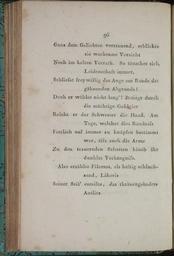 96
Ganz dem Geliebten vertrauend, schließt
sie wachsame Vorsicht
Noch im kalten Versteck. So täuschet sich,
Leidenschaft immer,
Schließet freywillig das Auge am Rande des
gähnenden Abgrunds!
Doch er wählte nicht lang'! Besiegt durch
die mächtige Gefühle
Reicht er der Schwester die Hand. Am
Tage, welcher dies Bündniß
Festlich auf immer zu knüpfen bestimmt
war, die auch die Arme
Zu den trauernden Schatten hinab ihr
dunkles Verhängniß.
Also erzählte Filemon, als heftig schluch-
zend, Likoris
Seiner Seit' enteilte, das thränengebadete
Antlitz